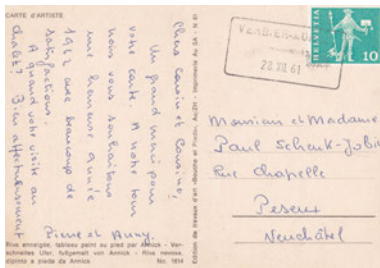 CARTE D'ARTISTE
Chers cousin et cousine,
Un grand merci pour
votre carte. A notre tour
nous vous souhaitons
une heureuse année
1962 avec beaucoup de
satisfactions.
A quand votre visite au
chalet? Bien affectueusement
Pierre et Anny.
Rive enneigée, tableau peint au pied par Annick - Ver-
schneites Ufer, fußgemalt von Annick - Riva nevosa,
dipinto a piede da Annick No. 1614
Edition de travaux d'art «Bouche et Pied», Au/ZH - Imprimerie Au SA - N 61
28.XII.61
HELVETIA
10
Monsieur et Madame
Paul Schenk-
Rue Chapelle
Peseux
Neuchâtel